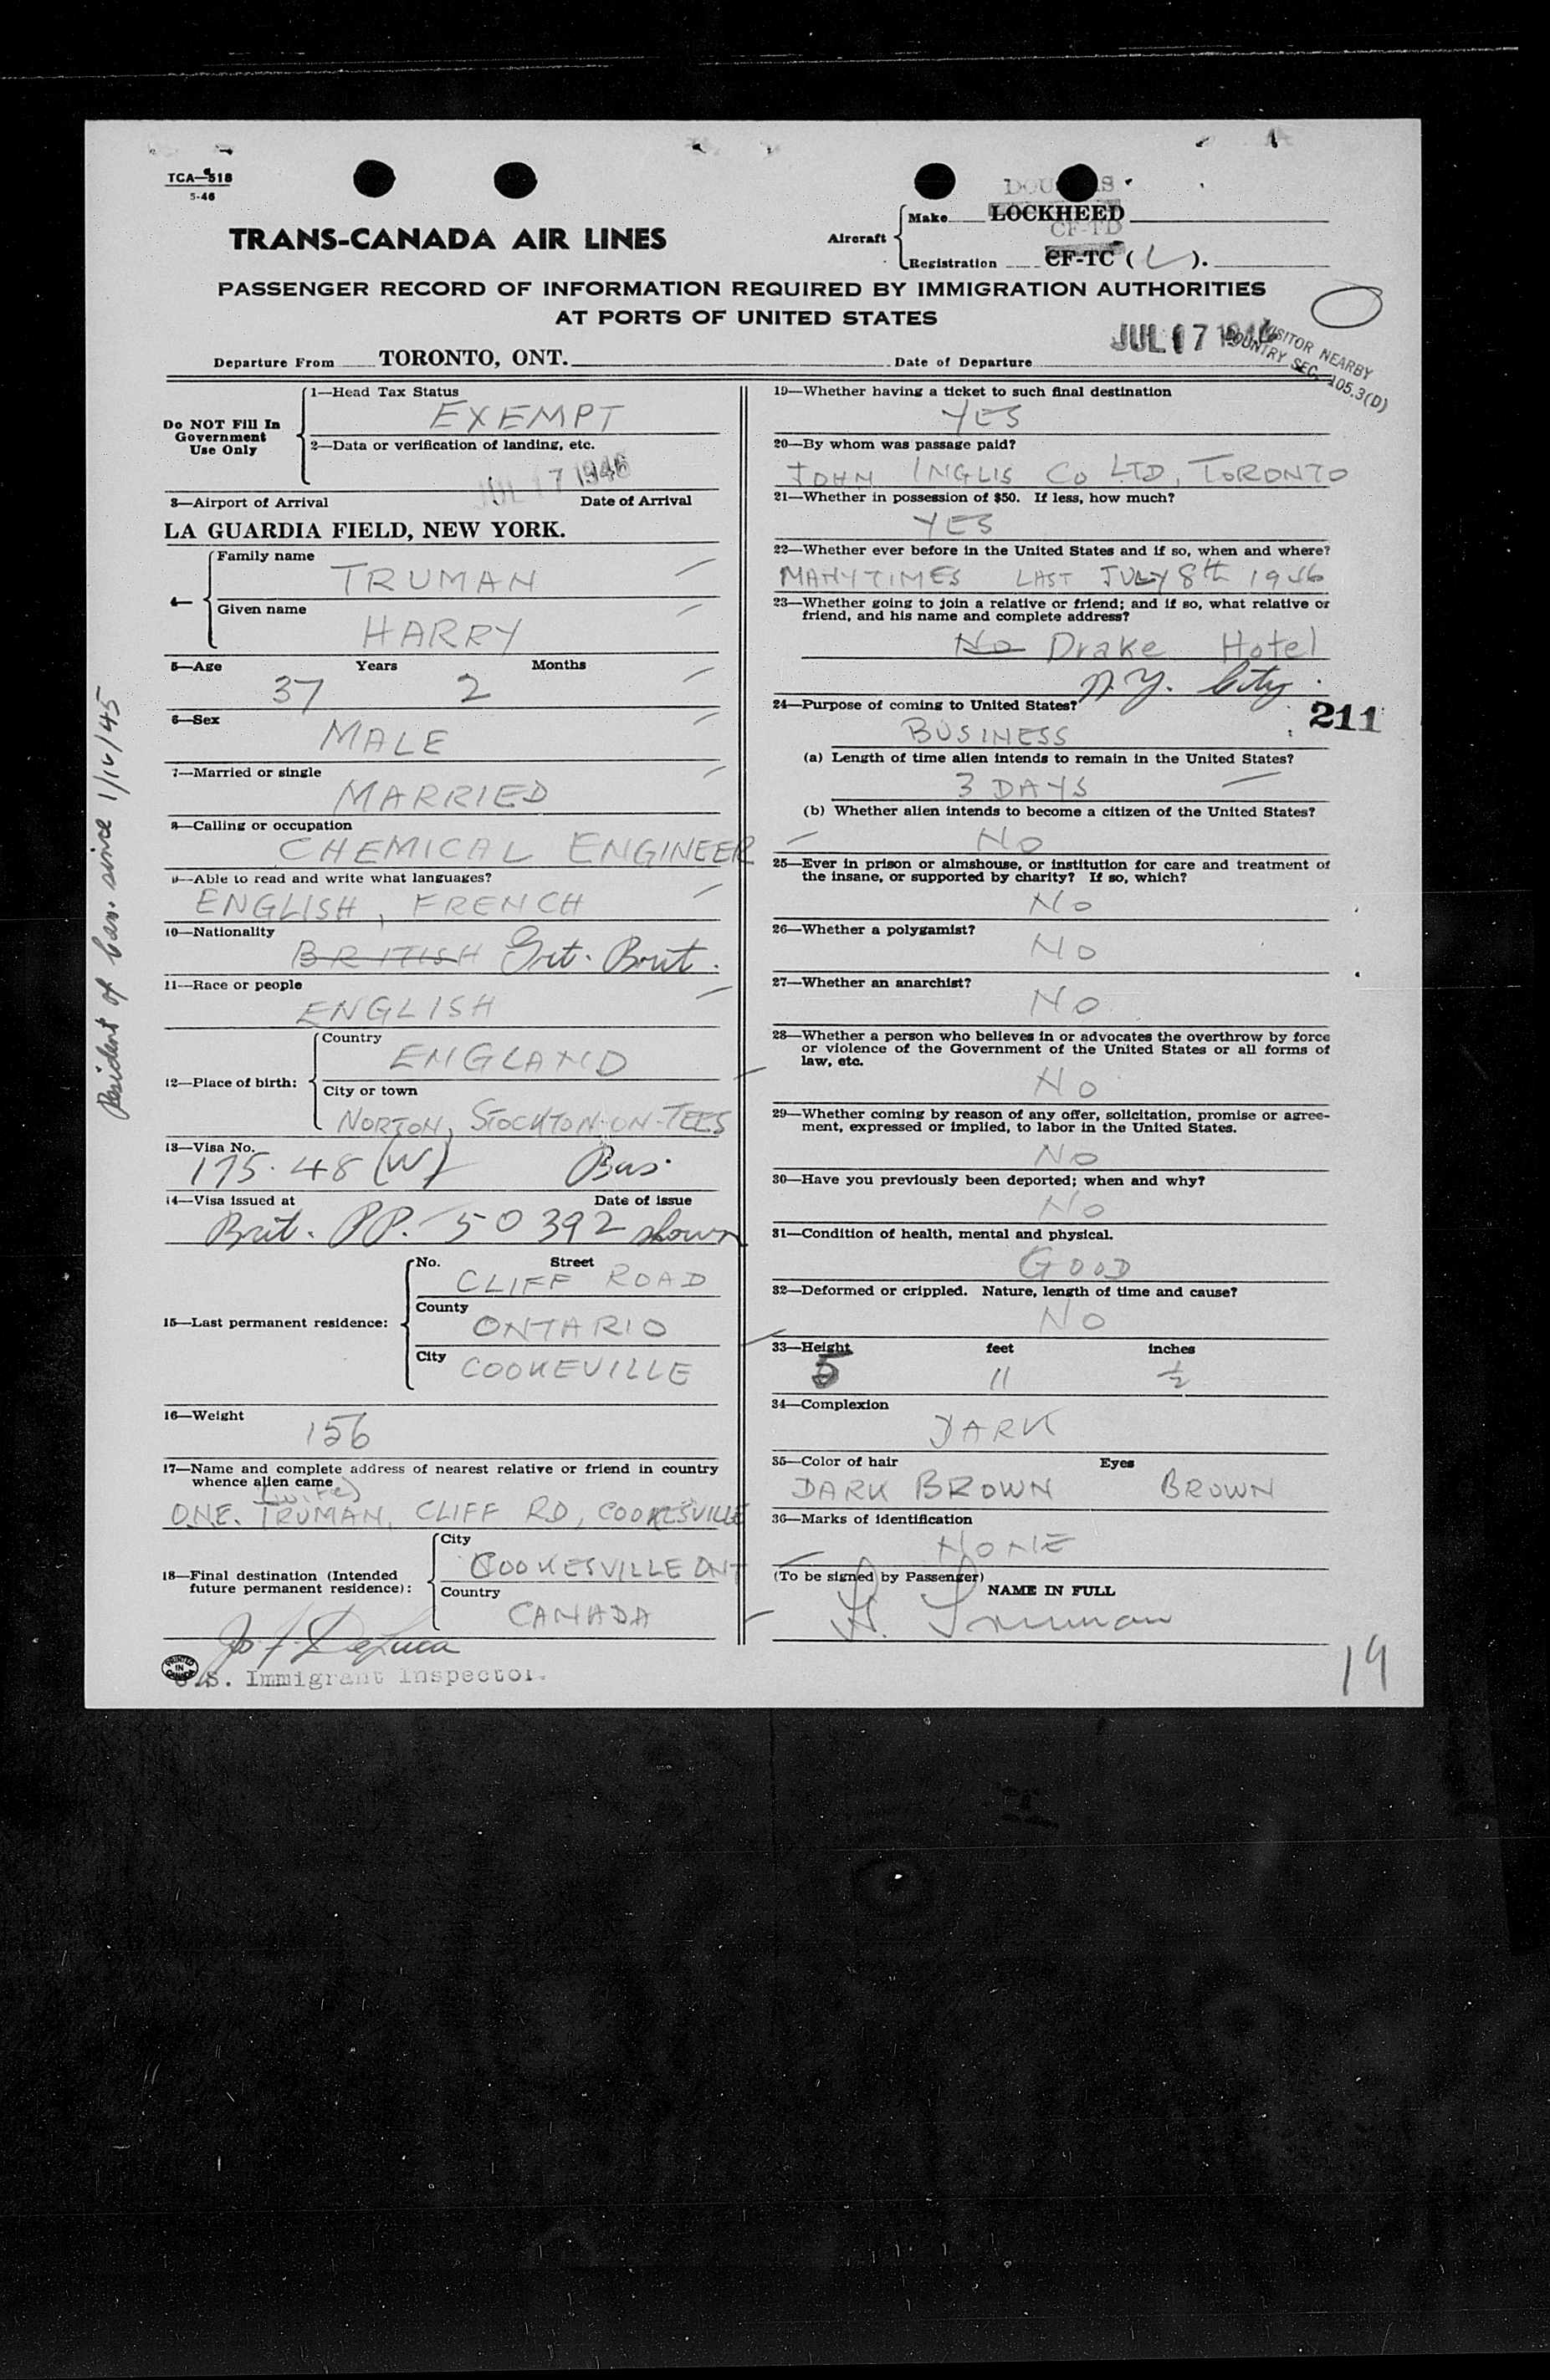 TCA-518
5-46
DOUGLAS
Make LOCKHEED
TRANS-CANADA AIR LINES
Aircraft
CF-TD
Registration CF-TC ( L ).
PASSENGER RECORD OF INFORMATION REQUIRED BY IMMIGRATION AUTHORITIES
AT PORTS OF UNITED STATES
JUL 17 1946
VISITOR NEARBY
COUNTRY SEC. 105.3(D)
Departure From TORONTO, ONT. Date of Departure
Do NOT Fill In
Government
Use Only
1—Head Tax Status
EXEMPT
2—Data or verification of landing, etc.
JUL 17 1946
3—Airport of Arrival Date of Arrival
LA GUARDIA FIELD, NEW YORK.
4—
Family name
TRUMAN
Given name
HARRY
5—Age Years Months
37 2
6—Sex
MALE
7—Married or single
MARRIED
8—Calling or occupation
CHEMICAL ENGINEER
9—Able to read and write what languages?
ENGLISH, FRENCH
10—Nationality
BRITISH Grt. Brit.
11—Race or people
ENGLISH
12—Place of birth:
Country
ENGLAND
City or town
NORTON, STOCKTON-ON-TEES
13—Visa No.
175.48 (W) Bus.
14—Visa issued at Date of issue
Brit. PP. 50392 shown
15—Last permanent residence:
No. Street
CLIFF ROAD
County
ONTARIO
City
COOKEVILLE
16—Weight
156
17—Name and complete address of nearest relative or friend in country
whence alien came
(wife)
TRUMAN, CLIFF RD, COOKESVILLE
18—Final destination (Intended
future permanent residence):
City
COOKESVILLE ONT
Country
CANADA
DeLuca
PRINTED IN CANADA
U.S. Immigrant Inspector.
Resident of Can. since
19—Whether having a ticket to such final destination
YES
20—By whom was passage paid?
JOHN INGLIS CO LTD, TORONTO
21—Whether in possession of $50. If less, how much?
YES
22—Whether ever before in the United States and if so, when and where?
MANY TIMES LAST JULY 8th 1946
23—Whether going to join a relative or friend; and if so, what relative or
friend, and his name and complete address?
No Drake Hotel
N.Y. City.
24—Purpose of coming to United States?
211
BUSINESS
(a) Length of time alien intends to remain in the United States?
3 DAYS
(b) Whether alien intends to become a citizen of the United States?
NO
25—Ever in prison or almshouse, or institution for care and treatment of
the insane, or supported by charity? If so, which?
NO
26—Whether a polygamist?
NO
27—Whether an anarchist?
NO
28—Whether a person who believes in or advocates the overthrow by force
or violence of the Government of the United States or all forms of
law, etc.
NO
29—Whether coming by reason of any offer, solicitation, promise or agree-
ment, expressed or implied, to labor in the United States.
NO
30—Have you previously been deported; when and why?
NO
31—Condition of health, mental and physical.
GOOD
32—Deformed or crippled. Nature, length of time and cause?
NO
33—Height feet inches
5 11 ½
34—Complexion
DARK
35—Color of hair Eyes
DARK BROWN BROWN
36—Marks of identification
NONE
(To be signed by Passenger)
NAME IN FULL
H. Truman
19